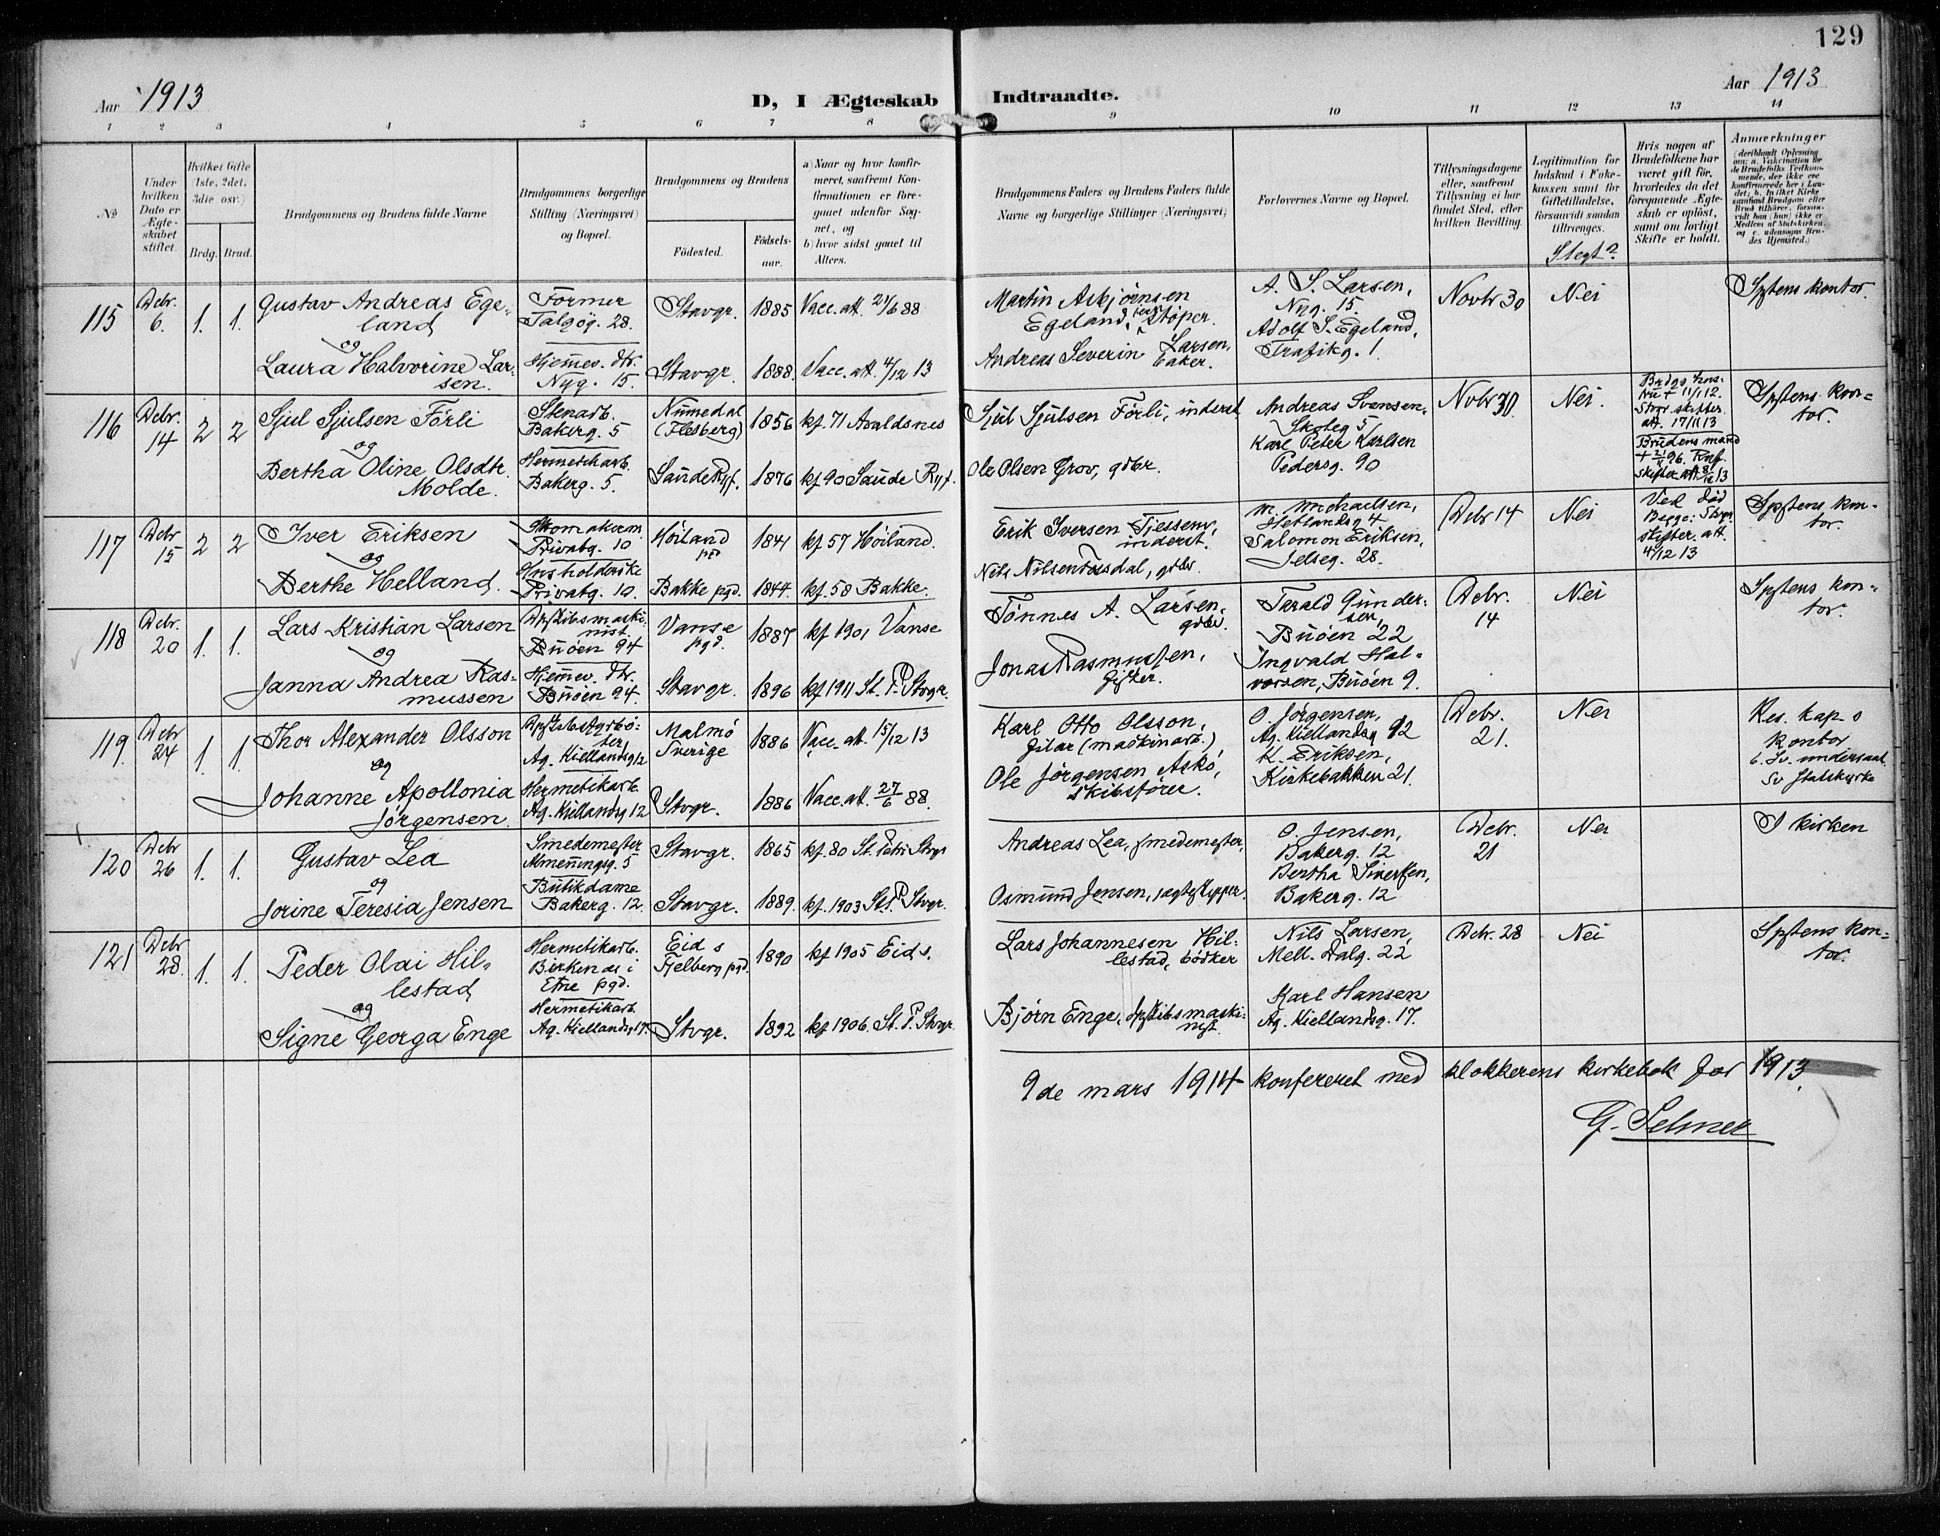 129
Aar 1913
D, I Ægteskab Indtraadte.
Aar 1913
1 2 3 4 5 6 7 8 9 10 11 12 13 14
No
Under hvilken Dato er Ægteskabet stiftet.
Hvilket Gifte (1ste, 2det, 3die osv.)
Brdg. Brud.
Brudgommens og Brudens fulde Navne
Brudgommens borgerlige Stilling (Næringsvei) og Bopæl.
Brudgommens og Brudens
Födested. Födsels-aar.
a) Naar og hvor konfirmeret, saafremt Konfirmationen er foregaaet udenfor Sognet, og
b) hvor sidst gaaet til Alters.
Brudgommens Faders og Brudens Faders fulde Navne og borgerlige Stillinger (Næringsvei)
Forlovernes Navne og Bopæl.
Tillysningsdagene eller, saafremt Tillysning ei har fundet Sted, efter hvilken Bevilling.
Legitimation for Indskud i Enkekassen samt for Giftetilladelse, forsaavidt saadan tiltrænges.
Slegt?
Hvis nogen af Brudefolkene har været gift før, hvorledes da det foregaaende Ægteskab er oplöst, samt om lovligt Skifte er holdt.
Anmerkninger
(deriblandt Oplysning om: a. Vakcination for de Brudefolks Vedkommende, der ikke ere konfirmerede her i Landet; b. hvilket Kirkesamfund Brudgom eller Brud tilhörer, forsaavidt han (hun) ikke er Medlem af Statskirken, og c. udensogns Brudes Hjemsted.)
115 Debr. 6. 1. 1.
Gustav Andreas Egeland
og
Laura Halvorine Larsen.
Former
Talgög. 28.
Hjemmev. dtr.
Nyg. 15.
Stavgr. 1885 Vacc. att. 21/6 88
Stavgr. 1888. Vacc. att. 4/12 13
Martin Askjørnsen
Egeland, støper.
Andreas Severin Larsen,
baker.
A. S. Larsen,
Nyg. 15.
Adolf S. Egeland,
Trafikg. 1.
Novbr 30 Nei
Sptens kontor.
116 Debr. 14 2 2
Sjul Sjulsen Förli
og
Bertha Oline Olsdtr.
Molde.
Stenarb.
Bakerg. 5
Hermetikarb.
Bakerg. 5.
Numedal
(Flesberg) 1856 kf. 71 Avaldsnes
Saude Ryf. 1876 kf 90 Saude Ryf.
Sjul Sjulsen Förli, inderst
Ole Olsen Grov, gdbr.
Andreas Svensen,
Skoleg 5
Karl Peter Karlsen
Pedersg. 90
Novbr 30. Nei.
Brdgs hustru + 11/1 12.
Stvgr skifter. att. 17/11 13
Brudens mand
Sptens kontor.
117 Debr 15 2 2
Iver Eriksen
og
Berthe Helland.
Skomakerm.
Privatg. 10
Husholderske
Privatg. 10.
Høiland 1841 kf 57 Høiland.
Bakke pgd. 1844. kf. 58 Bakke.
Erik Iversen Tjessem,
inderst.
Nils Nilsen Tosdal, gdbr.
M. Michaelsen,
Hetlandsg 4
Salomon Eriksen,
Jelseg. 28.
Debr 14 Nei
Ved død
Begge: Stvgr.
skifter. att.
4/12 13
Sptens kontor.
118 Debr. 20 1. 1.
Lars Kristian Larsen
og
Janna Andrea Rasmussen
Dpskibsmaskinist.
Buöen 94
Hjemmev. dtr.
Buöen 94.
Vanse pgd. 1887 kf 1901 Vanse
Stavgr. 1896 kf 1911 St. P. Stvgr.
Tønnes A. Larsen,
gdbr.
Jonas Rasmussen,
Gjster.
Tarald Gundersen,
Buöen 22
Ingvald Halvorsen, Buöen 9.
Debr. 14 Nei
Sptens kontor.
119. Debr 24 1. 1.
Thor Alexander Olsson
og
Johanne Apollonia
Jørgensen.
Dpskibsfyrböter
Ag. Kiellandsg 12
Hermetikarb.
Ag. Kiellandsg 12
Malmö
Sverige 1886 Vacc. att. 15/12 13
Stvgr. 1886 Vacc. att. 27/6 88.
Karl Otto Olsson,
filar (maskinarb.)
Ole Jörgensen Askö,
skibsfører.
O. Jørgensen,
Ag. Kiellandsg 12
K. Eriksen,
Kirkebakken 21.
Debr. 21. Nei
Res. kap. s
kontor
b. Sv. undersaat
Sv Statskyrka
120 Debr 26 1. 1.
Gustav Lea
og
Jorine Teresia Jensen
Smedemester
Almenningsg. 5
Butikdame
Bakerg. 12.
Stavgr. 1865 kf. 80 St. Petri Stvgr
Stavgr. 1889. kf. 1903 St. P. Stvgr.
Andreas Lea, smedemester,
Osmund Jensen, jagtskipper.
O. Jensen,
Bakerg. 12
Bertha Sivertsen,
Bakerg. 12
Debr. 21 Nei
I kirken
121 Debr 28. 1. 1.
Peder Olai Hillestad
og
Signe Georga Enge
Hermetikarb.
Birkenæs i
Etne pgd.
Hermetikarb.
Ag. Kiellandsg 17.
Eid s
Fjelberg pgd. 1890 kf 1905 Eid s.
Stvgr. 1892 kf 1906. St. P. Stvgr.
Lars Johannesen Hillestad, bödker
Bjørn Enge, dpskibsmaskinist.
Nils Larsen,
Mell. Dalg. 22
Karl Hansen
Ag. Kiellandsg. 17.
Debr. 28 Nei
Sptens kontor.
9de mars 1914 konfereret med klokkerens kirkebok for 1913.
G. Selmer